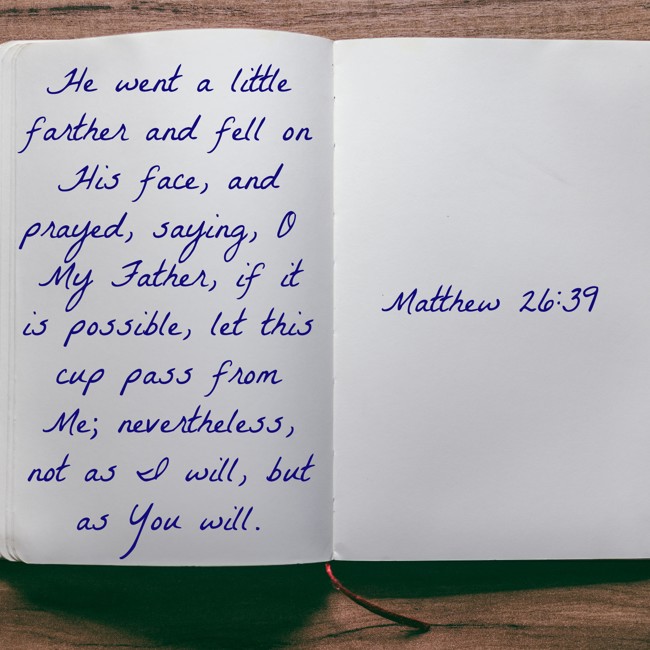 He went a little
farther and fell on
His face, and
prayed, saying, O
My Father, if it
is possible, let this
cup pass from
Me; nevertheless,
not as I will, but
as You will.
Matthew 26:39